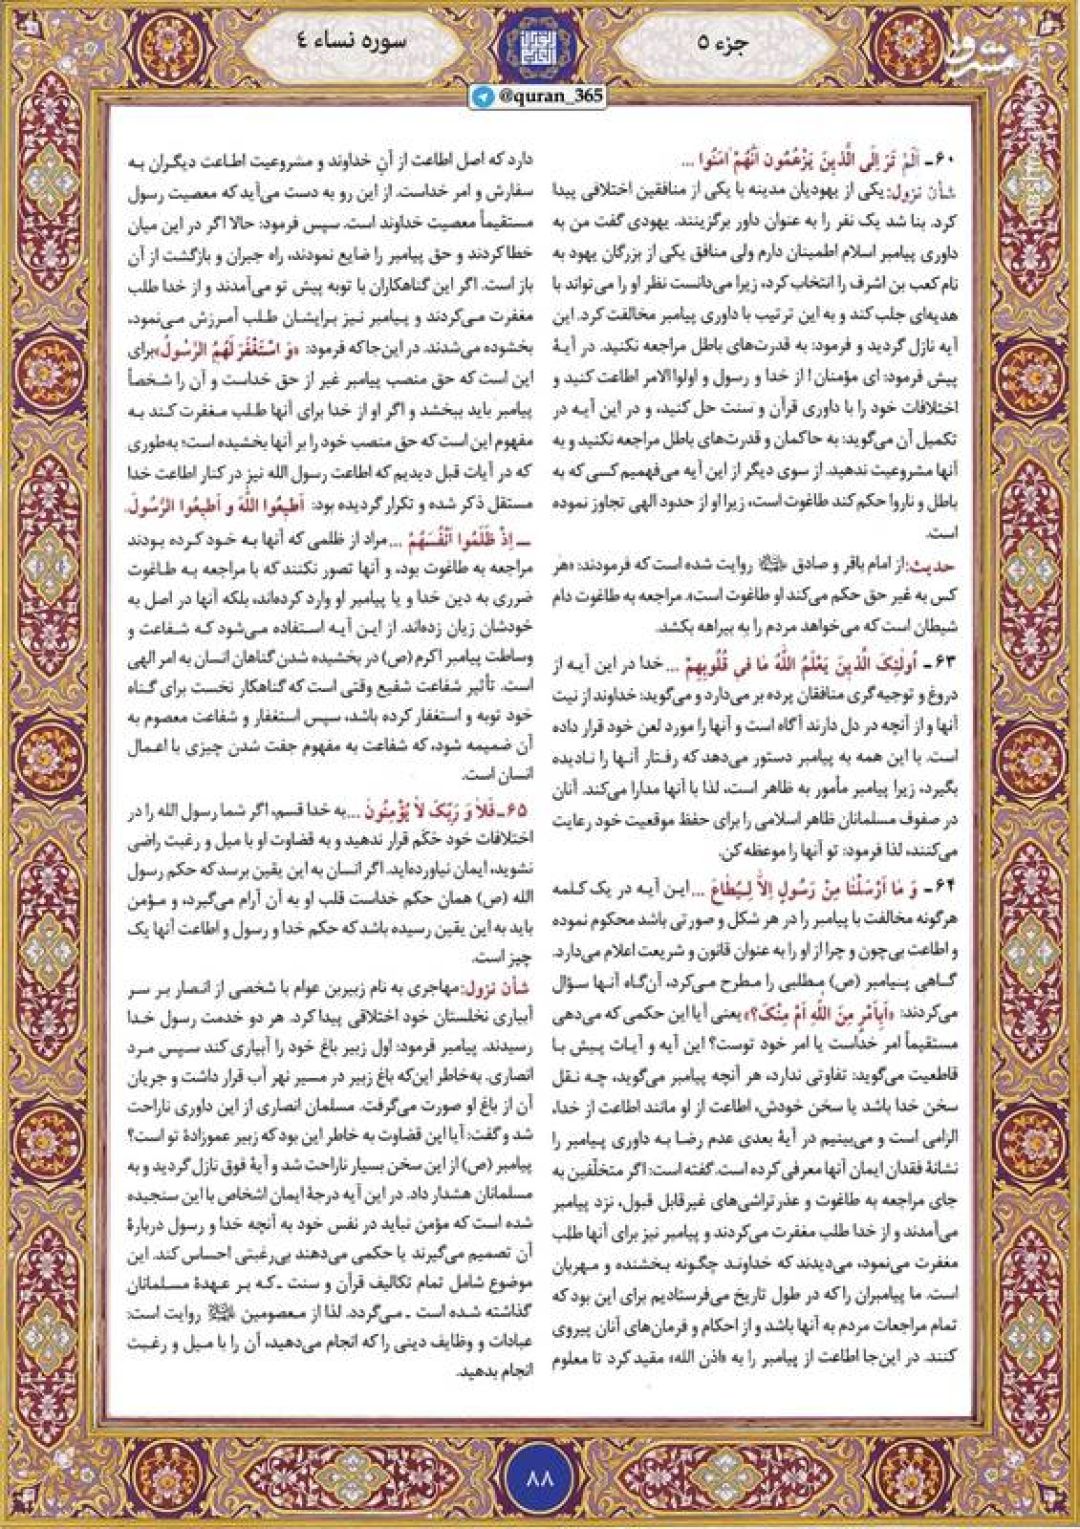 جزء ۵
سوره نساء ٤
@quran_365
مشرق
۶۰ـ اَلَمْ تَرَ اِلَى الَّذِينَ يَزْعُمُونَ اَنَّهُمْ اٰمَنُوا ...
شأن نزول: یکی از یهودیان مدینه با یکی از منافقین اختلافی پیدا
کرد. بنا شد یک نفر را به عنوان داور برگزینند. یهودی گفت من به
داوری پیامبر اسلام اطمینان دارم ولی منافق یکی از بزرگان یهود به
نام کعب بن اشرف را انتخاب کرد، زیرا می‌دانست نظر او را می‌تواند با
هدیه‌ای جلب کند و به این ترتیب با داوری پیامبر مخالفت کرد. این
آیه نازل گردید و فرمود: به قدرت‌های باطل مراجعه نکنید. در آیهٔ
پیش فرمود: ای مؤمنان! از خدا و رسول و اولوا الامر اطاعت کنید و
اختلافات خود را با داوری قرآن و سنت حل کنید، و در این آیه در
تکمیل آن می‌گوید: به حاکمان و قدرت‌های باطل مراجعه نکنید و به
آنها مشروعیت ندهید. از سوی دیگر از این آیه می‌فهمیم کسی که به
باطل و ناروا حکم کند طاغوت است، زیرا او از حدود الهی تجاوز نموده
است.
حدیث: از امام باقر و صادق روایت شده است که فرمودند: «هر
کس به غیر حق حکم می‌کند او طاغوت است». مراجعه به طاغوت دام
شیطان است که می‌خواهد مردم را به بیراهه بکشد.
۶۳ـ اُولٰئِکَ الَّذِینَ یَعْلَمُ اللّٰهُ مَا فِی قُلُوبِهِمْ ... خدا در این آیه از
دروغ و توجیه گری منافقان پرده بر می‌دارد و می‌گوید: خداوند از نیت
آنها و از آنچه در دل دارند آگاه است و آنها را مورد لعن خود قرار داده
است. با این همه به پیامبر دستور می‌دهد که رفتار آنها را نادیده
بگیرد، زیرا پیامبر مأمور به ظاهر است، لذا با آنها مدارا می‌کند. آنان
در صفوف مسلمانان ظاهر اسلامی را برای حفظ موقعیت خود رعایت
می‌کنند، لذا فرمود: تو آنها را موعظه کن.
۶۴ـ وَ مَا اَرْسَلْنَا مِنْ رَسُولٍ اِلاَّ لِیُطَاعَ ... این آیه در یک کلمه
هرگونه مخالفت با پیامبر را در هر شکل و صورتی باشد محکوم نموده
و اطاعت بی‌چون و چرا از او را به عنوان قانون و شریعت اعلام می‌دارد.
گاهی پیامبر (ص) مطلبی را مطرح می‌کرد، آن‌گاه آنها سؤال
می‌کردند: «اَبِاَمْرٍ مِنَ اللّٰهِ اَمْ مِنْکَ؟» یعنی آیا این حکمی که می‌دهی
مستقیماً امر خداست یا امر خود توست؟ این آیه و آیات پیش با
قاطعیت می‌گوید: تفاوتی ندارد، هر آنچه پیامبر می‌گوید، چه نقل
سخن خدا باشد یا سخن خودش، اطاعت از او مانند اطاعت از خدا،
الزامی است و می‌بینیم در آیهٔ بعدی عدم رضا به داوری پیامبر را
نشانهٔ فقدان ایمان آنها معرفی کرده است. گفته است: اگر متخلّفین به
جای مراجعه به طاغوت و عذرتراشی‌های غیرقابل قبول، نزد پیامبر
می‌آمدند و از خدا طلب مغفرت می‌کردند و پیامبر نیز برای آنها طلب
مغفرت می‌نمود، می‌دیدند که خداوند چگونه بخشنده و مهربان
است. ما پیامبران را که در طول تاریخ می‌فرستادیم برای این بود که
تمام مراجعات مردم به آنها باشد و از احکام و فرمان‌های آنان پیروی
کنند. در این‌جا اطاعت از پیامبر را به «اذن الله» مقید کرد تا معلوم
دارد که اصل اطاعت از آنِ خداوند و مشروعیت اطاعت دیگران به
سفارش و امر خداست. از این رو به دست می‌آید که معصیت رسول
مستقیماً معصیت خداوند است. سپس فرمود: حالا اگر در این میان
خطا کردند و حق پیامبر را ضایع نمودند، راه جبران و بازگشت از آن
باز است. اگر این گناهکاران با توبه پیش تو می‌آمدند و از خدا طلب
مغفرت می‌کردند و پیامبر نیز برایشان طلب آمرزش می‌نمود،
بخشوده می‌شدند. در این‌جا که فرمود: «وَ اسْتَغْفَرَ لَهُمُ الرَّسُولُ» برای
این است که حق منصب پیامبر غیر از حق خداست و آن را شخصاً
پیامبر باید ببخشد و اگر او از خدا برای آنها طلب مغفرت کند به
مفهوم این است که حق منصب خود را بر آنها بخشیده است؛ به‌طوری
که در آیات قبل دیدیم که اطاعت رسول الله نیز در کنار اطاعت خدا
مستقل ذکر شده و تکرار گردیده بود: اَطِیعُوا اللّٰهَ وَ اَطِیعُوا الرَّسُولَ.
ـ اِذْ ظَلَمُوا اَنْفُسَهُمْ ... مراد از ظلمی که آنها به خود کرده بودند
مراجعه به طاغوت بود، و آنها تصور نکنند که با مراجعه به طاغوت
ضرری به دین خدا و یا پیامبر او وارد کرده‌اند، بلکه آنها در اصل به
خودشان زیان زده‌اند. از این آیه استفاده می‌شود که شفاعت و
وساطت پیامبر اکرم (ص) در بخشیده شدن گناهان انسان به امر الهی
است. تأثیر شفاعت شفیع وقتی است که گناهکار نخست برای گناه
خود توبه و استغفار کرده باشد، سپس استغفار و شفاعت معصوم به
آن ضمیمه شود، که شفاعت به مفهوم جفت شدن چیزی با اعمال
انسان است.
۶۵ـ فَلاٰ وَ رَبِّکَ لاٰ یُؤْمِنُونَ ... به خدا قسم، اگر شما رسول الله را در
اختلافات خود حکَم قرار ندهید و به قضاوت او با میل و رغبت راضی
نشوید، ایمان نیاورده‌اید. اگر انسان به این یقین برسد که حکم رسول
الله (ص) همان حکم خداست قلب او به آن آرام می‌گیرد، و مؤمن
باید به این یقین رسیده باشد که حکم خدا و رسول و اطاعت آنها یک
چیز است.
شأن نزول: مهاجری به نام زبیربن عوام با شخصی از انصار بر سر
آبیاری نخلستان خود اختلافی پیدا کرد. هر دو خدمت رسول خدا
رسیدند. پیامبر فرمود: اول زبیر باغ خود را آبیاری کند سپس مرد
انصاری. به‌خاطر این‌که باغ زبیر در مسیر نهر آب قرار داشت و جریان
آن از باغ او صورت می‌گرفت. مسلمان انصاری از این داوری ناراحت
شد و گفت: آیا این قضاوت به خاطر این بود که زبیر عموزادهٔ تو است؟
پیامبر (ص) از این سخن بسیار ناراحت شد و آیهٔ فوق نازل گردید و به
مسلمانان هشدار داد. در این آیه درجهٔ ایمان اشخاص با این سنجیده
شده است که مؤمن نباید در نفس خود به آنچه خدا و رسول دربارهٔ
آن تصمیم می‌گیرند یا حکمی می‌دهند بی‌رغبتی احساس کند. این
موضوع شامل تمام تکالیف قرآن و سنت ـ که بر عهدهٔ مسلمانان
گذاشته شده است ـ می‌گردد. لذا از معصومین روایت است:
عبادات و وظایف دینی را که انجام می‌دهید، آن را با میل و رغبت
انجام بدهید.
۸۸